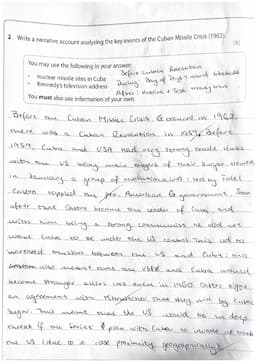 2 Write a narrative account analysing the key events of the Cuban Missile Crisis (1962).
(8)
You may use the following in your answer:
• Nuclear missile sites in Cuba
• Kennedy's television address
You must also use information of your own.
Before Cuban Revolution
During: Bay of Pigs naval blockade
After: Hotline & Test treaty ban
Before the Cuban Missile Crisis occured in 1962,
there was a Cuban Revolution in 1959. Before
1959, Cuba and USA had very strong trade links
with the US being main buyers of their sugar. However
in January a group of revolutionaries led by Fidel
Castro toppled the pro-American government. Soon
after that Castro became the leader of Cuba and
with him being a strong communist he did not
want Cuba to be under the US control. This led to
increased tension between the US and Cuba; this
also meant that the USSR and Cuba would
become stronger allies as even in 1960 Castro signs
an agreement with Khrushchev that they will buy Cuban
Sugar. This meant that the US would be in deep
threat if the Soviet plan with Cuba to invade or
the US (due to a close proximity geographically)